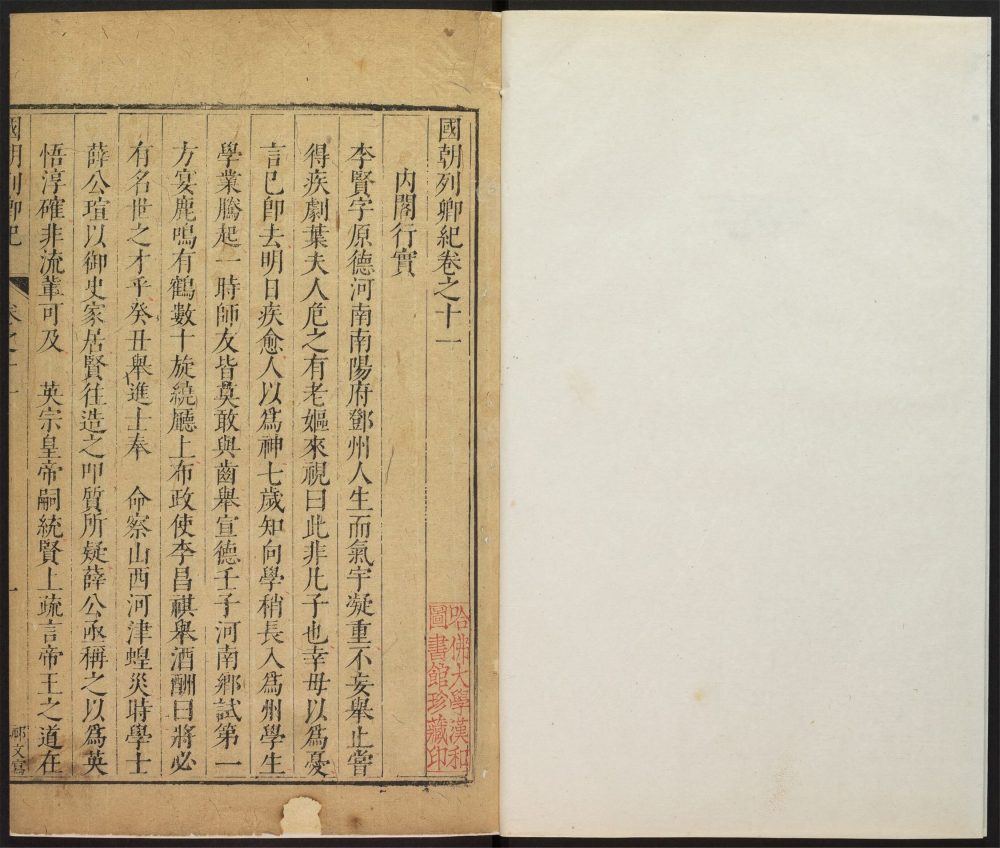 國朝列卿紀卷之十一
内閣行實
李賢字原德河南南陽府鄧州人生而氣宇凝重不妄舉止嘗
得疾劇葉夫人危之有老嫗來視曰此非凡子也幸毋以爲憂
言已卽去明日疾愈人以爲神七歲知向學稍長入爲州學生
學業騰起一時師友皆莫敢與齒舉宣德壬子河南鄉試第一
方宴鹿鳴有鶴數十旋繞廳上布政使李昌祺舉酒酬曰將必
有名世之才乎癸丑舉進士奉 命察山西河津蝗災時學士
薛公瑄以御史家居賢往造之叩質所疑薛公亟稱之以爲英
悟淳確非流輩可及 英宗皇帝嗣統賢上疏言帝王之道在
國朝列卿紀 卷之十一 一
祁文寫
哈佛大學漢和
圖書館珍藏印